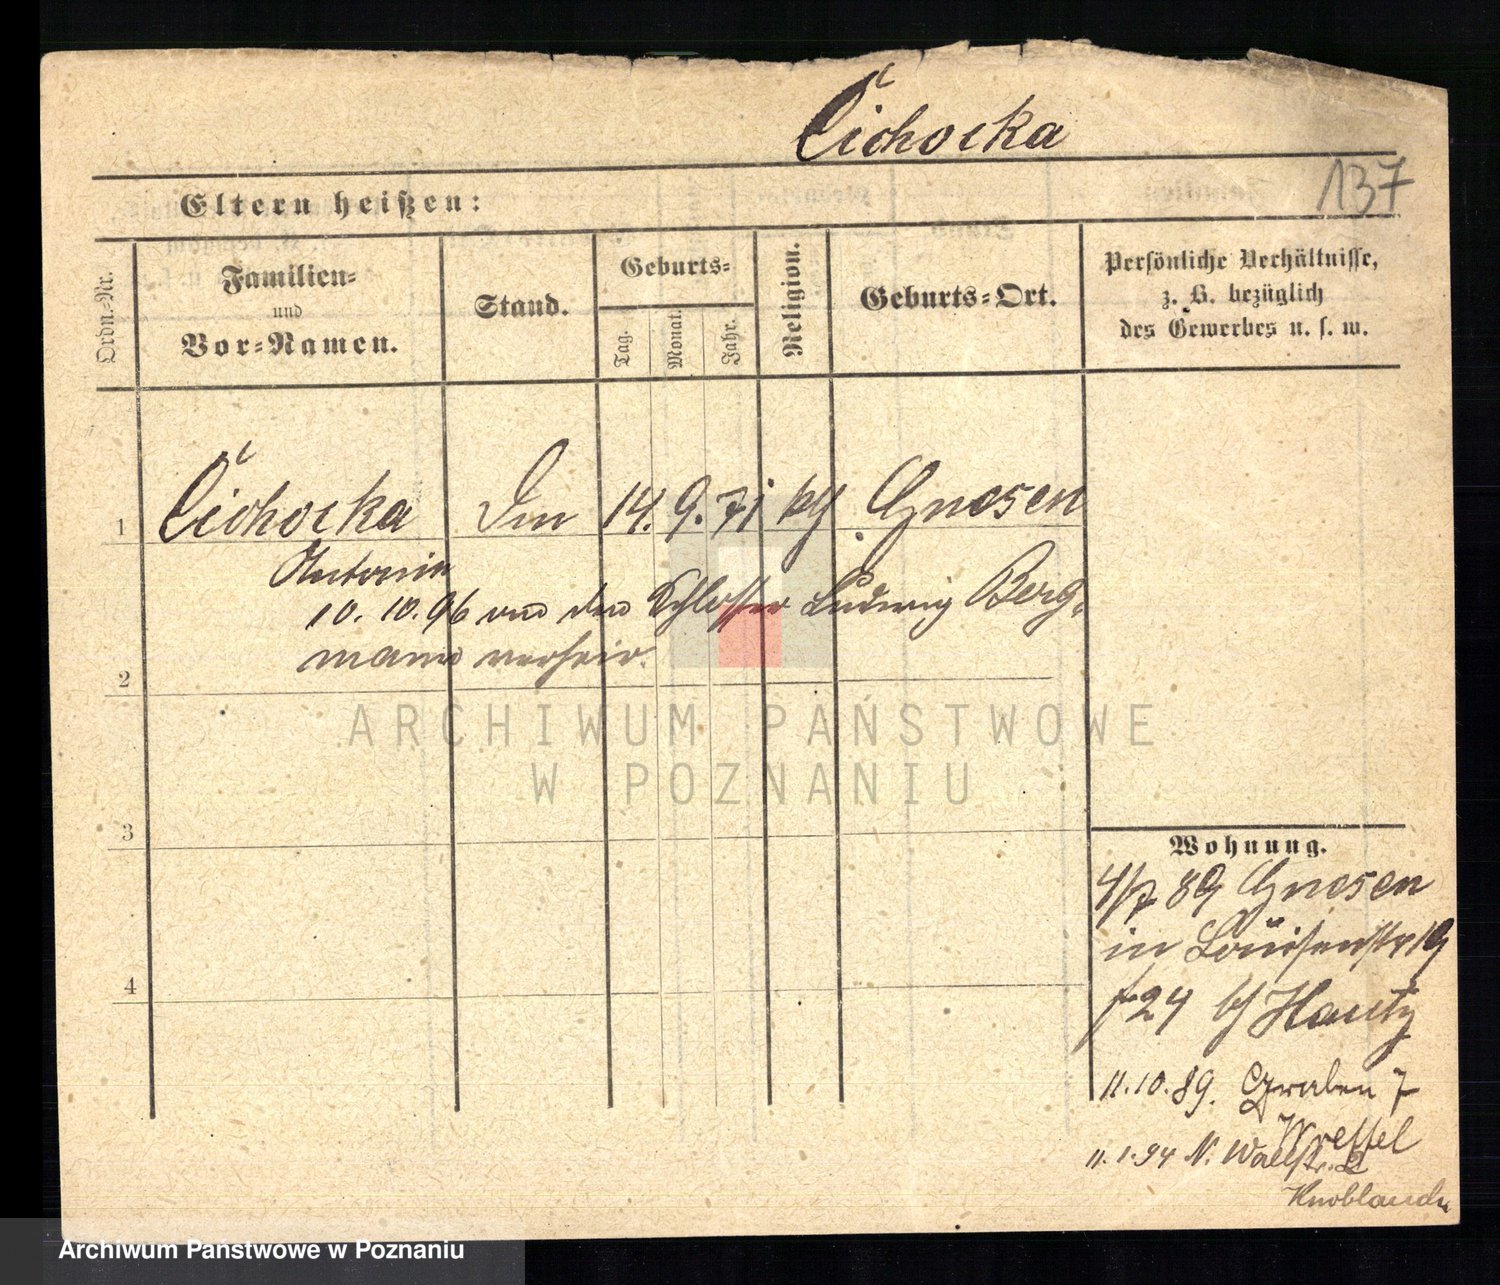 Cichocka
137
Eltern heißen:
Ordn.-Nr.
Familien-
und
Vor-Namen.
Stand.
Geburts-
Tag.
Monat.
Jahr.
Religion.
Geburts-Ort.
Persönliche Verhältnisse,
z. B. bezüglich
des Gewerbes u. s. w.
1 Cichocka 14. 9. 71 Gnesen
Antonie
10. 10. 96 den Schlosser Ludwig Berg-
mann verheir.
2
ARCHIWUM PAŃSTWOWE
W POZNANIU
3
4
Wohnung.
4/7 89 Gnesen
in Louisenstr 19
24 b/ Hautz
11.10.89. Graben 7
Wressel
11.1.94 N. Wallstr. 2
Knoblauch
Archiwum Państwowe w Poznaniu